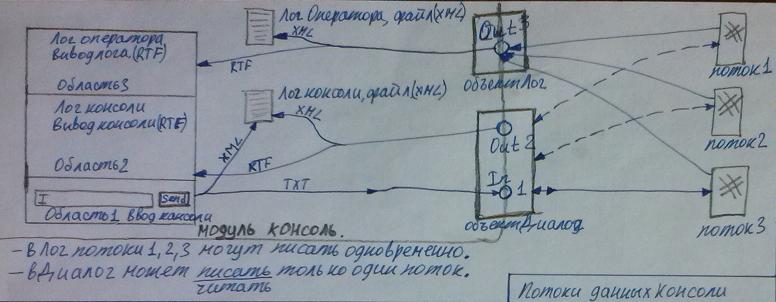 Лог оператора
Вывод лога(RTF)
Область3
Лог консоли
Вывод консоли(RTF)
Область2
I
send
Область1, Ввод консоли
Лог Оператора, файл(XML)
XML
RTF
Лог консоли, файл(XML)
XML
XML
RTF
TXT
Out 3
объектЛог
Out 2
In
1
объектДиалог
поток1
поток2
поток3
МОДУЛЬ КОНСОЛЬ.
– В Лог потоки 1,2,3 могут писать одновременно.
– в Диалог может писать только один поток.
читать
Потоки данных Консоли